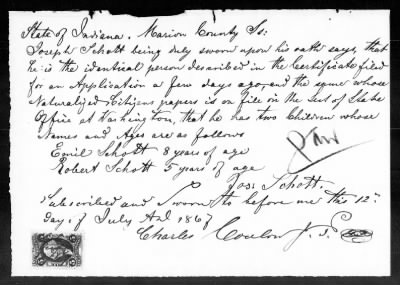 State of Indiana. Marion County Ss:
Joseph Schott being duly sworn upon his oath says, that
he is the identical person described in the Certificate filed
for an Application a few days ago, and the same whose
Naturalized Citizens papers is on file in the Sect of State
Office at Washington, that he has two Children whose
Names and Ages are as follows
Emil Schott 8 years of age
Robert Schott 5 years of age
Jos: Schott.
Subscribed and Sworn to before me this 12th
day of July A.d 1867
Charles Coulon J. P.